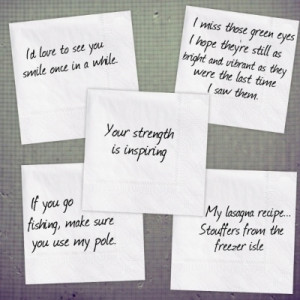 I'd love to see you
smile once in a while.
I miss those green eyes
I hope they're still as
bright and vibrant as they
were the last time
I saw them.
Your strength
is inspiring
If you go
fishing, make sure
you use my pole.
My lasagna recipe...
Stouffers from the
freezer isle